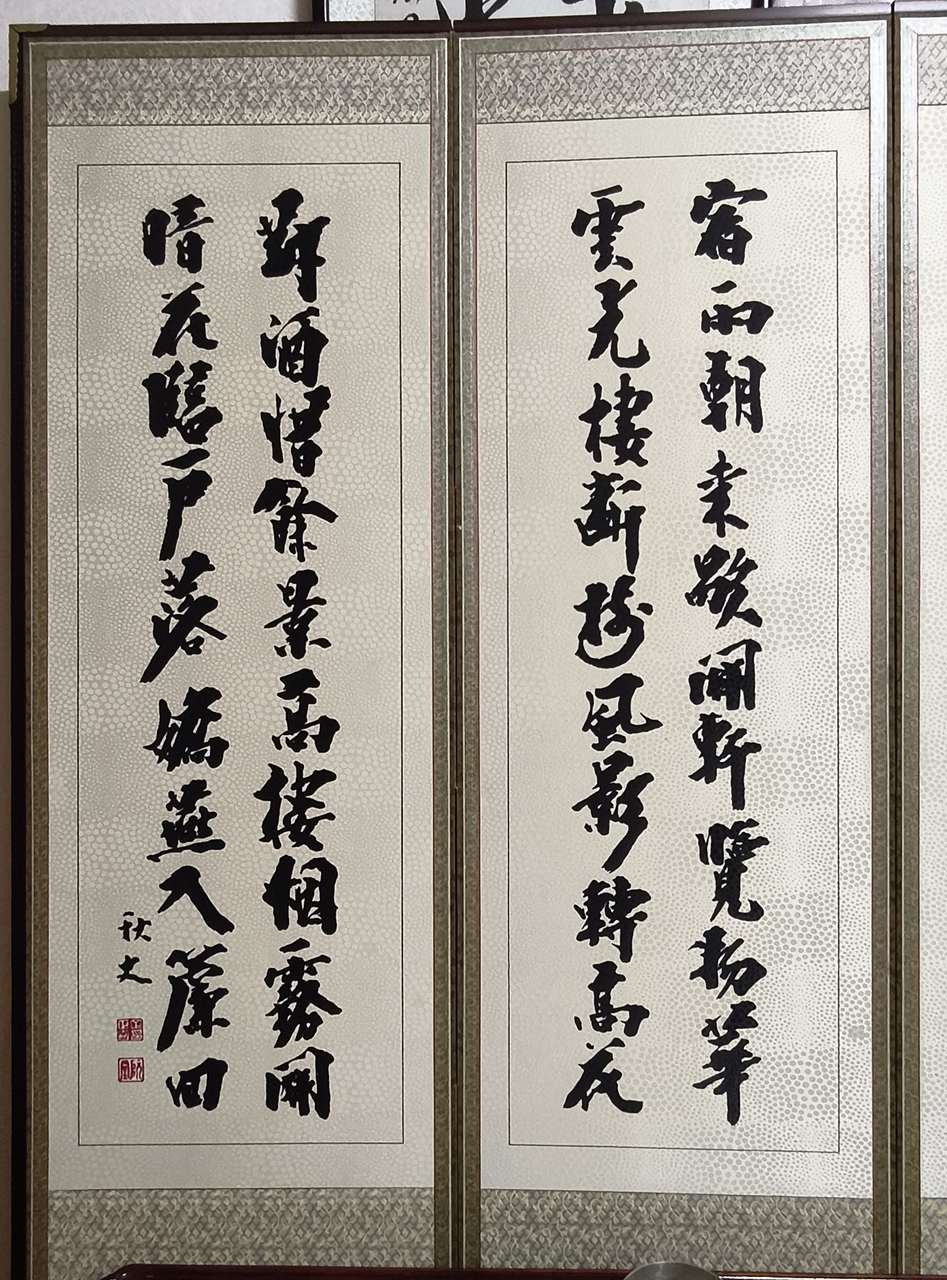 宿雨朝来歇開軒覽物華
雲光棲断樹風影轉高花
對酒惜餘景高樓烟霧開
暗花臨戶落嬌燕入簾回
秋史